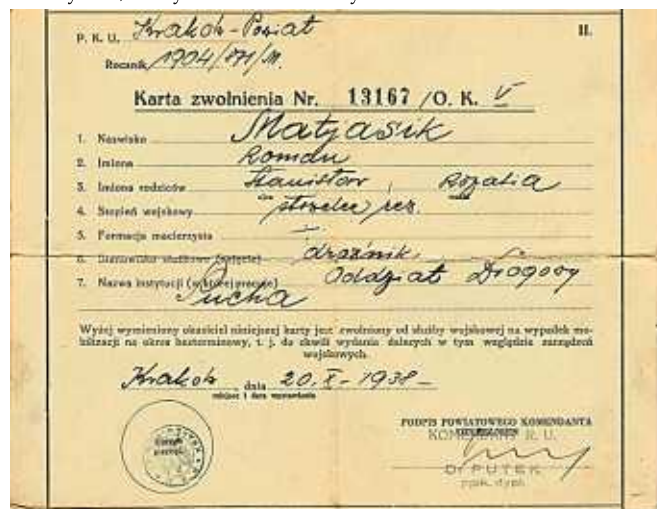 P. K. U. Kraków-Powiat II.
Rocznik 1904/871/M.
Karta zwolnienia Nr. 13167 /O. K. V
1. Nazwisko Matjasik
2. Imiona Roman
3. Imiona rodziców Stanisław, Rozalia
4. Stopień wojskowy strzelec rez.
5. Formacja macierzysta —
6. Stanowisko służbowe (zajęcie) drożnik
7. Nazwa instytucji (w której pracuje) Oddział Drogowy
Sucha
Wyżej wymieniony okaziciel niniejszej karty jest zwolniony od służby wojskowej na wypadek mo-
bilizacji na okres bezterminowy, t. j. do chwili wydania dalszych w tym względzie zarządzeń
wojskowych.
Kraków, dnia 20. X - 1938 -
miejsce i data wystawienia
PODPIS POWIATOWEGO KOMENDANTA
UZUPEŁNIEŃ
KOMENDANT R. U.
Okrągła
pieczęć
Dr PUTEK
ppłk. dypl.